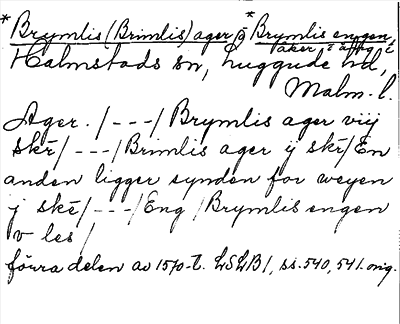 * Brymlis (Brimlis) ager o * Brymlis engen,
åker äng
Halmstads sn, Luggude hd,
Malm. l.
Ager. / - - - / Brymlis ager viij
skr / - - - / Brimlis ager ij skr / En
anden ligger synden for weyen
j skr / - - - / Eng / Brymlis engen
v les /
förra delen av 1570-t. LSLB1, ss. 540, 541. orig.